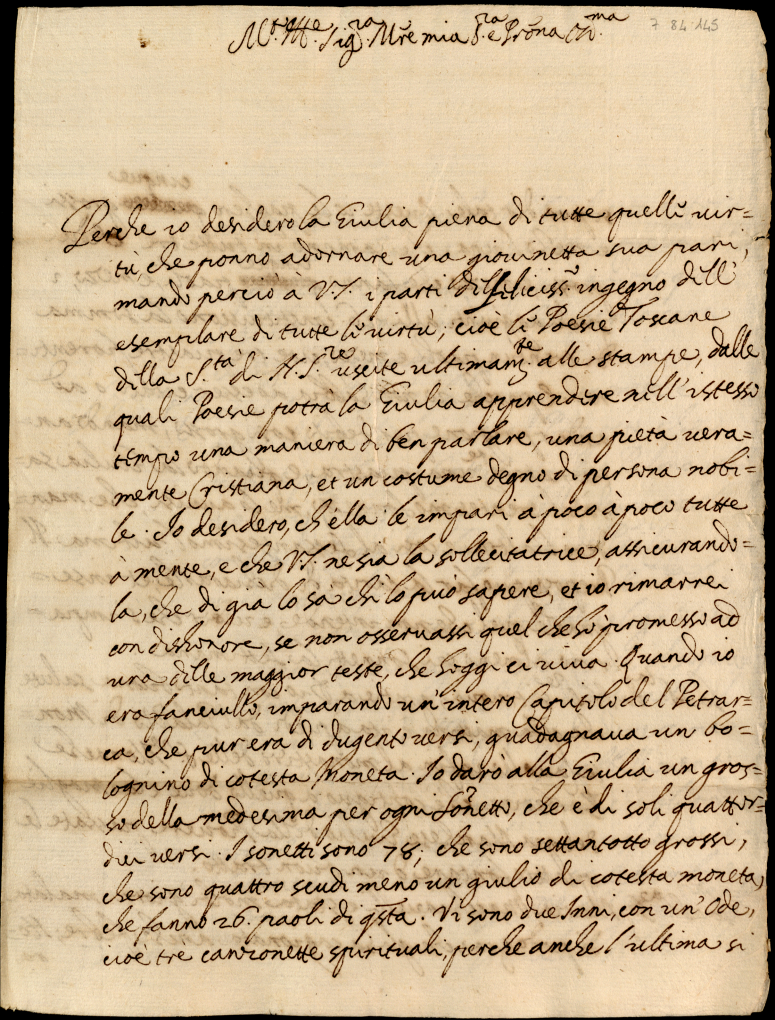 7 84 145
M.to Ill.re Sig.ra M.re mia S.ra e Prōna Oss.ma
Perche io desidero la Giulia piena di tutte quelle vir=
tù, che ponno adornare una giovinetta sua pari,
mando perciò à V.S. i parti dell felicissº ingegno dell'
esemplare di tutte le virtù, cioè le Poesie Toscane
della S.tà di N. S.re uscite ultimam.te alle stampe, dalle
quali Poesie potrà la Giulia apprendere nell'istesso
tempo una maniera di ben parlare, una pietà vera=
mente Cristiana, et un costume degno di persona nobi=
le. Io desidero, ch'ella le impari à poco à poco tutte
à mente, e che V.S. ne sia la sollecitatrice, assicurando=
la, che di già lo sà chi lo può sapere, et io rimarrei
con dishonore, se non osservassi quel che hò promesso ad
una delle maggior teste, che hoggi ci viva. Quando io
era fanciullo, imparando un'intero Capitolo del Petrar=
ca, che pur era di dugento versi, guadagnava un bo=
lognino di cotesta Moneta. Io darò alla Giulia un gros=
so della medesima per ogni Sonetto, che è di soli quattor=
dici versi. I sonetti sono 78, che sono settantotto grossi,
che sono quattro scudi meno un giulio di cotesta moneta,
che fanno 26. paoli di q̄sta. Vi sono due Inni, con un'Ode,
cioè trè canzonette spirituali, perche anche l'ultima si